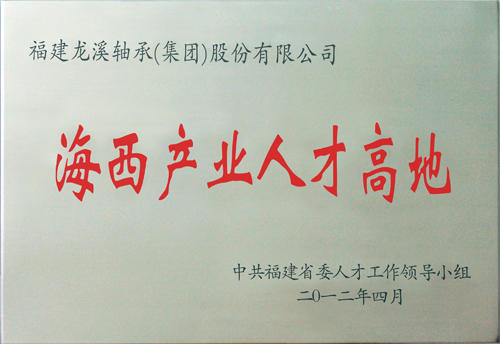 福建龙溪轴承(集团)股份有限公司
海西产业人才高地
中共福建省委人才工作领导小组
二〇一二年四月